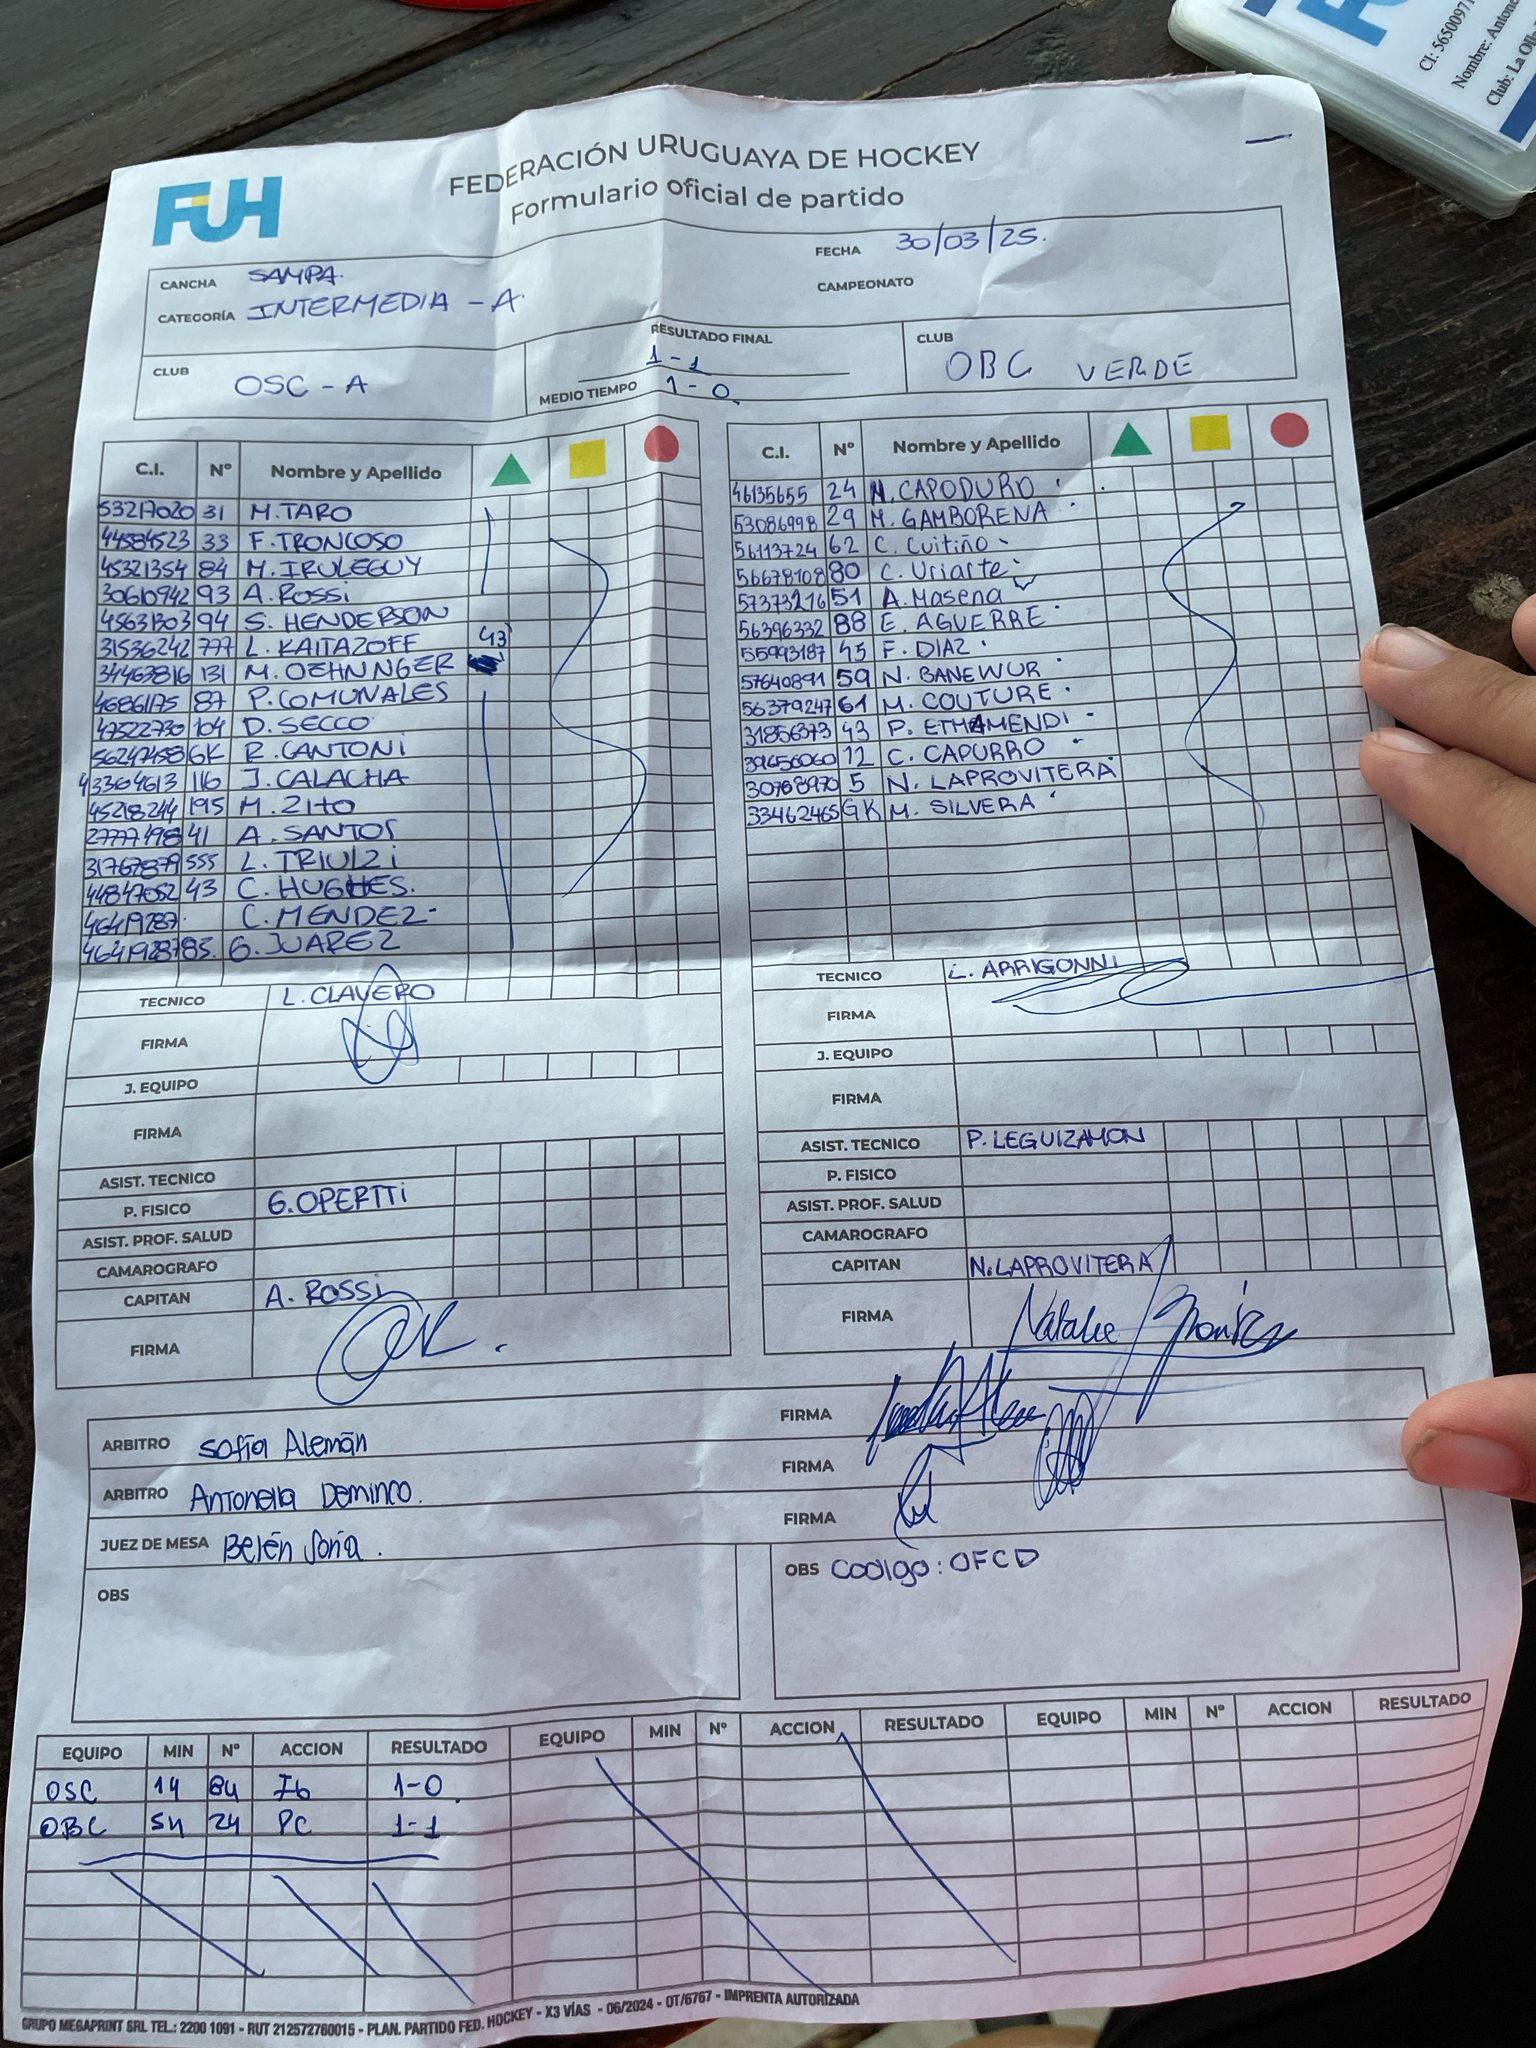 FUH
FEDERACIÓN URUGUAYA DE HOCKEY
Formulario oficial de partido
CANCHA SAMPA.
FECHA 30/03/25.
CATEGORÍA INTERMEDIA - A.
CAMPEONATO
CLUB OSC - A
RESULTADO FINAL 1-1
MEDIO TIEMPO 1-0
CLUB OBC VERDE
C.I. Nº Nombre y Apellido
53217020 31 M. TARO
44584523 33 F. TRONCOSO
45321354 84 M. IRULEGUY
30610942 93 A. ROSSi
45631303 94 S. HENDERSON
31536242 777 L. KAITAZOFF 43'
34463816 131 M. OEHNNGER
4686175 87 P. COMUNALES
47522730 104 D. SECCO
56247458 GK R. CANTONi
43364613 116 J. CALACHA
45218244 195 M. ZITO
27777498 41 A. SANTOS
31767879 555 L. TRIULZi
44847052 43 C. HUGHES.
46419287 C. MENDEZ-
46419287 85. G. JUAREZ
TECNICO L. CLAVERO
FIRMA
J. EQUIPO
FIRMA
ASIST. TECNICO
P. FISICO G. OPERTTi
ASIST. PROF. SALUD
CAMAROGRAFO
CAPITAN A. ROSSi
FIRMA
C.I. Nº Nombre y Apellido
46135655 24 N. CAPODURO
53086998 29 M. GAMBORENA
56113724 62 C. Cuitiño
56678108 80 C. Uriarte
57373216 51 A. Masena
56396332 88 E. AGUERRE
55993187 45 F. DIAZ
57640891 59 N. BANEWUR
56379247 61 M. COUTURE
31856373 43 P. ETHAMENDI
39456060 12 C. CAPURRO
30768970 5 N. LAPROVITERA
33462465 GK M. SILVERA
TECNICO L. ARRIGONNI
FIRMA
J. EQUIPO
FIRMA
ASIST. TECNICO P. LEGUIZAMON
P. FISICO
ASIST. PROF. SALUD
CAMAROGRAFO
CAPITAN N. LAPROVITERA
FIRMA Natalie
ARBITRO Sofía Alemán FIRMA
ARBITRO Antonella Deminco. FIRMA
JUEZ DE MESA Belén Soria. FIRMA
OBS
OBS Codigo: OFCD
EQUIPO MIN Nº ACCION RESULTADO EQUIPO MIN Nº ACCION RESULTADO EQUIPO MIN Nº ACCION RESULTADO
OSC 14 84 1-0
OBC 54 24 PC 1-1
GRUPO MEGAPRINT SRL TEL.: 2200 1091 - RUT 212572760015 - PLAN. PARTIDO FED. HOCKEY - X3 VÍAS - 06/2024 - OT/6767 - IMPRENTA AUTORIZADA
CI: 5650097
Nombre: Antone
Club: La Oll